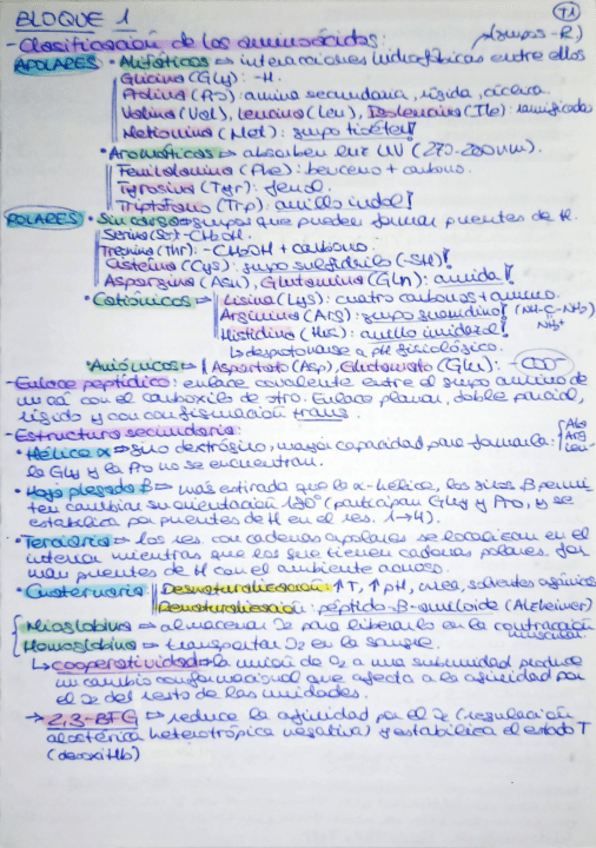 BLOQUE 1
T1
- Clasificación de los aminoácidos:
(grupos -R)
APOLARES • Alifáticos ⇒ interacciones hidrofóbicas entre ellos
Glicina (Gly): -H.
Prolina (Pro): amina secundaria, rígida, cíclica.
Valina (Val), Leucina (Leu), Isoleucina (Ile): ramificadas
Metionina (Met): grupo tioéter!
• Aromáticos ⇒ absorben luz UV (270-280nm).
Fenilalanina (Phe): benceno + carbono.
Tyrosina (Tyr): fenol.
Triptófano (Trp): anillo indol!
POLARES • Sin carga ⇒ grupos que pueden formar puentes de H.
Serina (Ser): -CH2OH.
Treonina (Thr): -CH2OH + carbono.
Cisteína (Cys): grupo sulfidrilo (-SH)!
Asparagina (Asn), Glutamina (Gln): amida!
• Catiónicos ⇒ Lisina (Lys): cuatro carbonos + amino.
Arginina (Arg): grupo guanidino! (NH-C-NH2)
NH2+
Histidina (His): anillo imidazol!
↳ desprotonarse a pH fisiológico.
• Aniónicos ⇒ Aspartato (Asp), Glutamato (Glu): -COO-
- Enlace peptídico: enlace covalente entre el grupo amino de
un aá con el carboxilo de otro. Enlace planar, doble parcial,
rígido y con configuración trans.
- Estructura secundaria:
• Hélice α ⇒ giro dextrógiro, mayor capacidad para formarla: { Ala
Arg
Leu
la Gly y la Pro no se encuentran.
• Hoja plegada β ⇒ más estirada que la α-hélice, los giros β permi-
ten cambiar su orientación 180° (participan Gly y Pro, y se
estabiliza por puentes de H en el res. 1→4).
• Terciaria ⇒ los res. con cadenas apolares se localizan en el
interior mientras que los que tienen cadenas polares for
man puentes de H con el ambiente acuoso.
• Cuaternaria: Desnaturalización: ↑T, ↑pH, urea, solventes orgánicos
Renaturalización: péptido-β-amiloide (Alzheimer)
Mioglobina ⇒ almacenar O2 para liberarlo en la contracción
muscular.
Hemoglobina ⇒ transportar O2 en la sangre.
↳ cooperatividad ⇒ la unión de O2 a una subunidad produce
un cambio conformacional que afecta a la afinidad por
el O2 del resto de las unidades.
→ 2,3-BFG ⇒ reduce la afinidad por el O2 (regulación
alostérica heterotrópica negativa) y estabiliza el estado T
(deoxiHb)